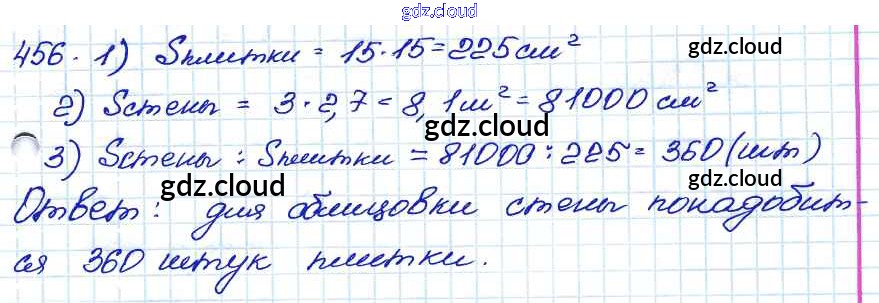 gdz.cloud
456. 1) Sплитки = 15·15=225см² gdz.cloud
2) Sстены = 3·2,7=8,1м²=81000см²
gdz.cloud
3) Sстены : Sплитки = 81000:225= 360(шт)
gdz.cloud gdz.cloud
Ответ: для облицовки стены понадобит-
ся 360 штук плитки.
gdz.cloud gdz.cloud